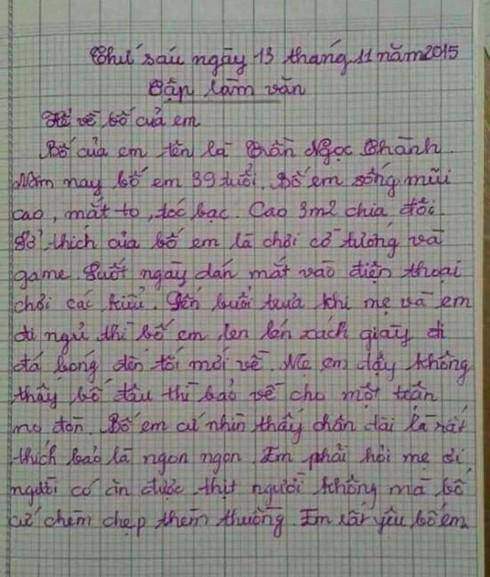 Thứ sáu ngày 13 tháng 11 năm 2015
Tập làm văn
Kể về bố của em
Bố của em tên là Trần Ngọc Thành.
Năm nay bố em 39 tuổi. Bố em sống mũi
cao, mắt to, tóc bạc. Cao 3m2 chia đôi.
Sở thích của bố em là chơi cờ tướng và
game. Suốt ngày dán mắt vào điện thoại
chơi các kiểu. Đến buổi trưa khi mẹ và em
đi ngủ thì bố em, len lén xách giày đi
đá bóng đến tối mới về. Mẹ em dậy không
thấy bố đâu thì bảo về cho một trận
no đòn. Bố em cứ nhìn thấy chân dài là rất
thích bảo là ngon ngon. Em phải hỏi mẹ ơi
người có ăn được thịt người không mà bố
cứ chem chẹp thèm thuồng. Em rất yêu bố em.